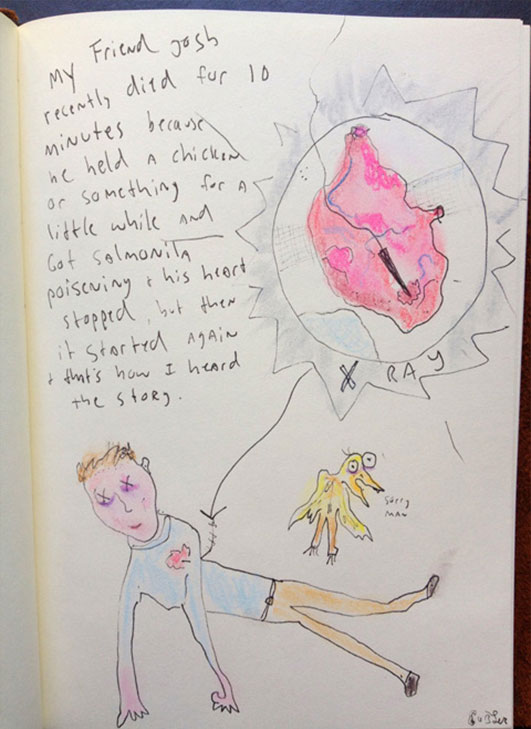 My Friend Josh
recently died for 10
minutes because
he held a chicken
or something for a
little while and
Got Salmonila
poisening & his heart
stopped, but then
it started again
& that's how I heard
the story.
X RAY
sorry
man
GUBLer